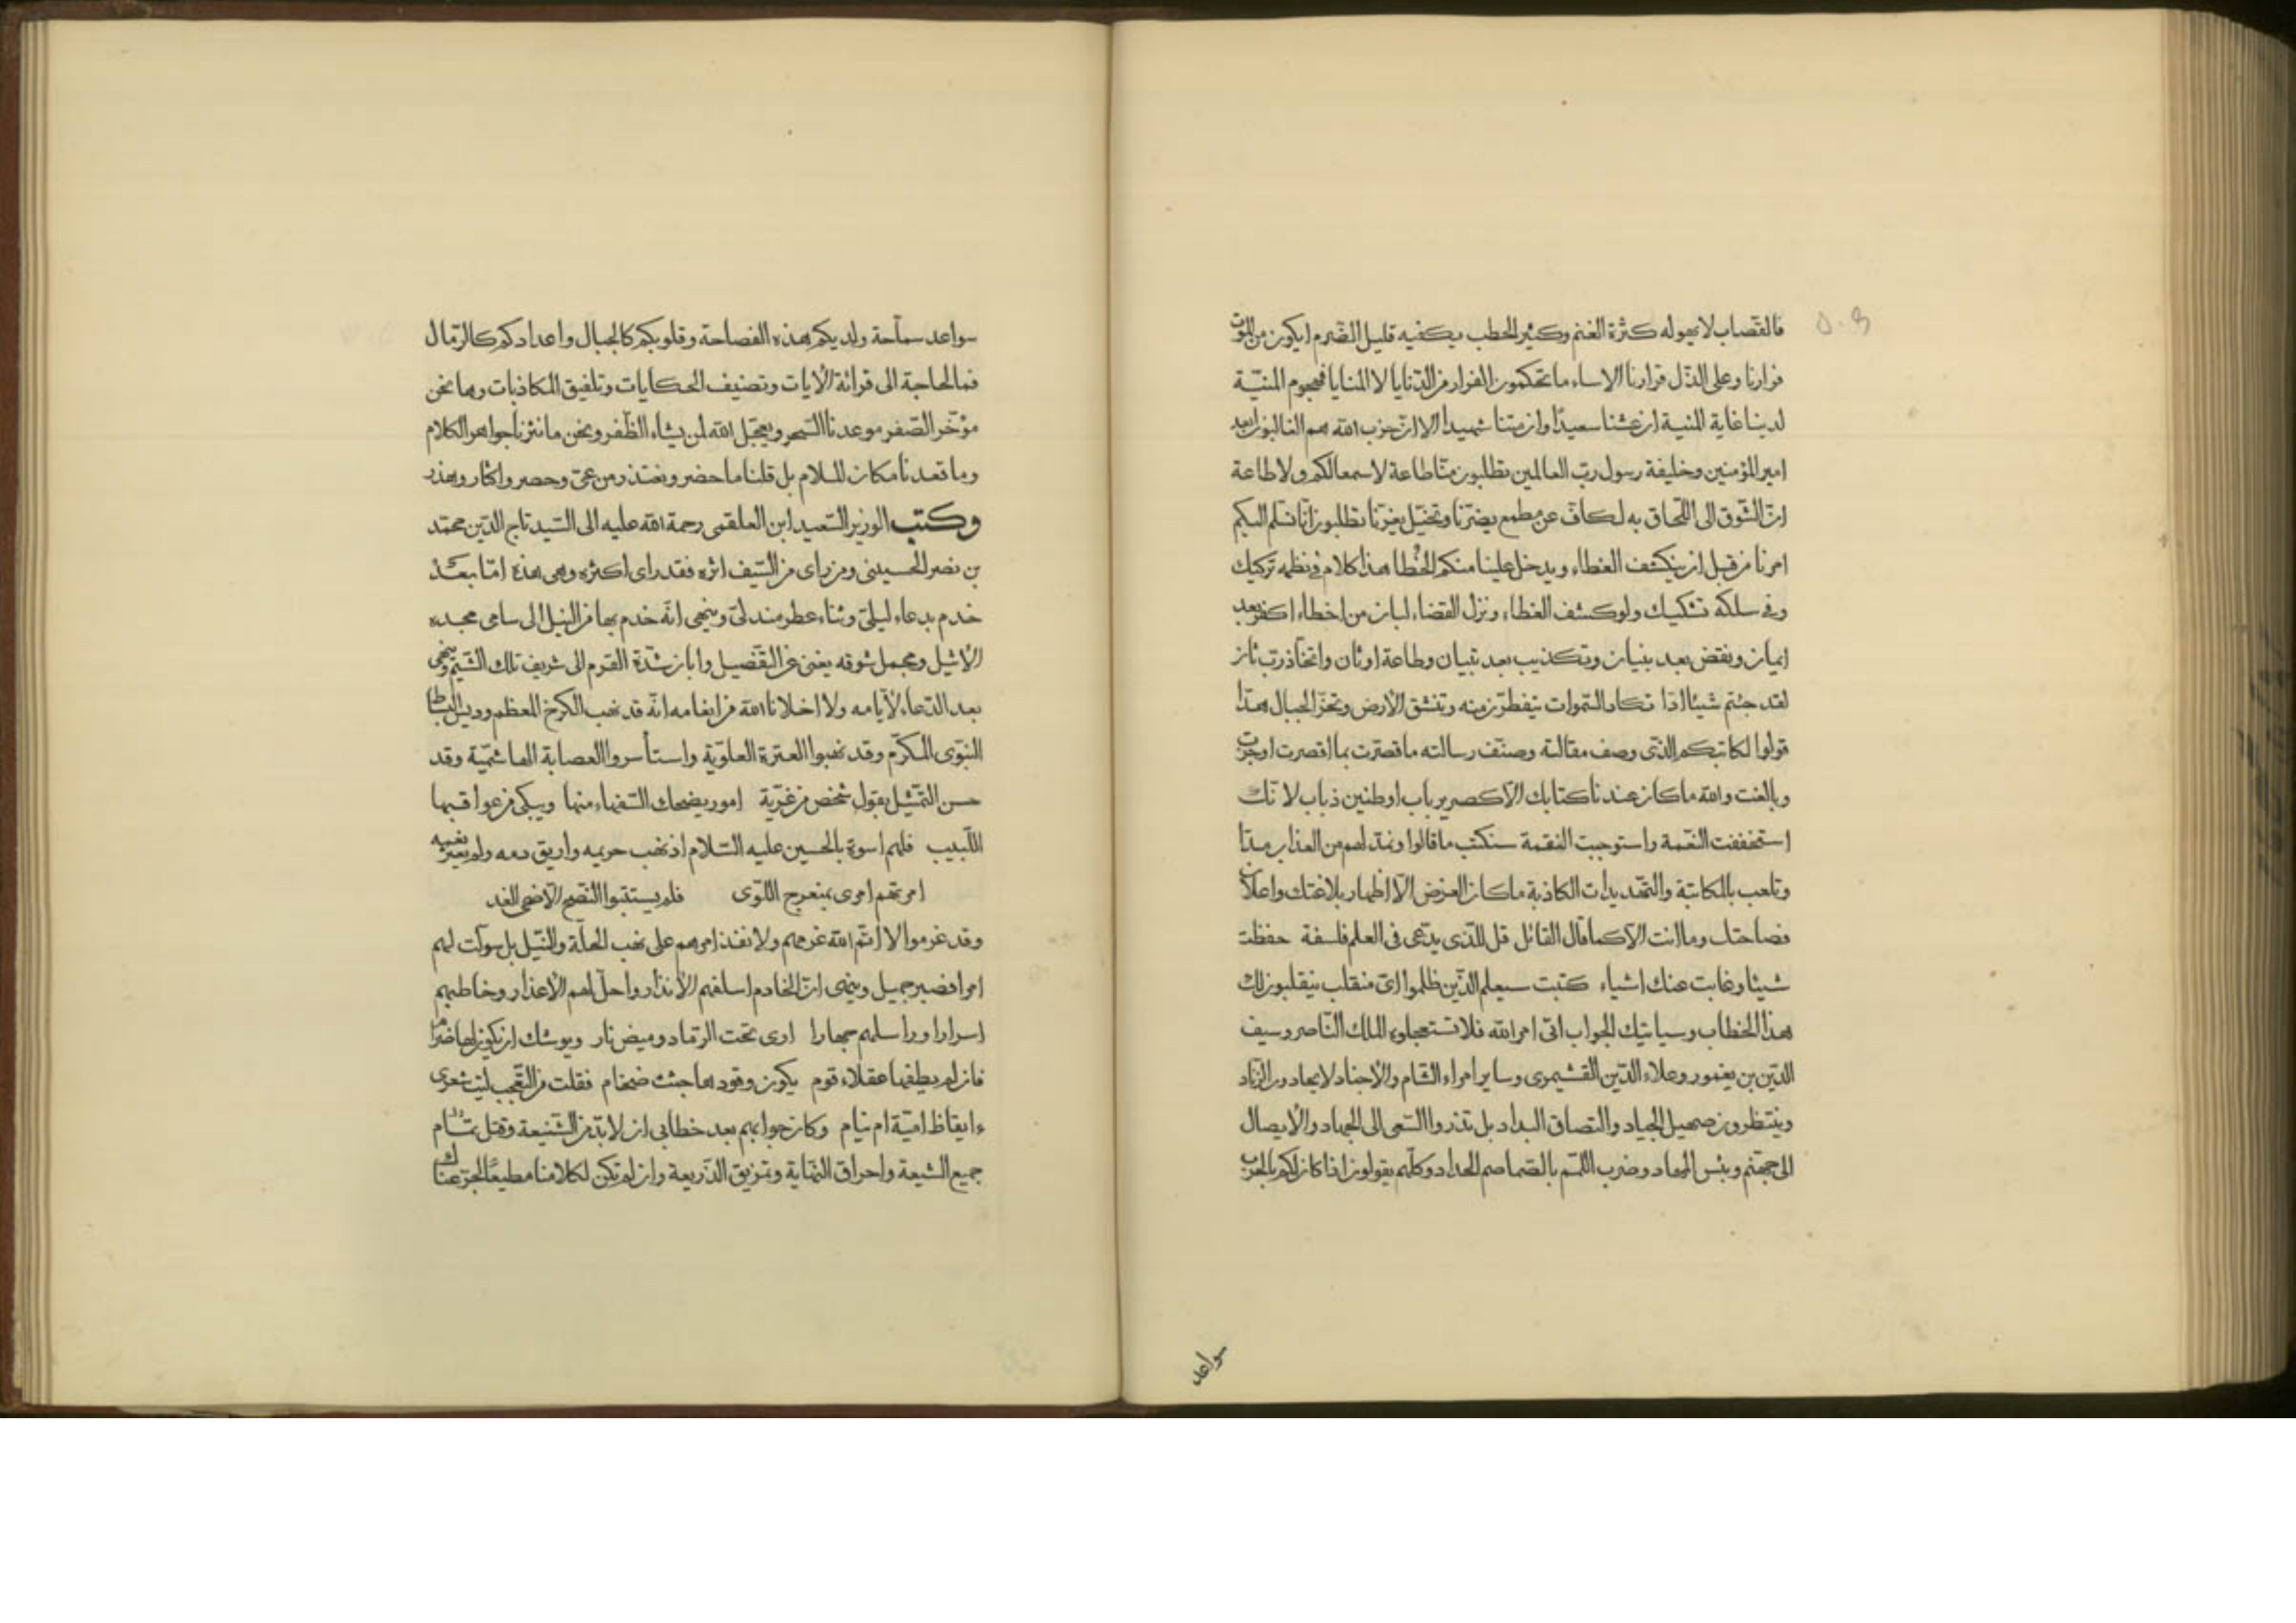 فالقصّاب لا يهوله كثرة الغنم وكثير الحطب يكفيه قليل الضرم ايكون من الموت
فرارنا وعلى الذّل قرارنا الا ساء ما تحكمون الفرار من الدّنايا لا المنايا فهجوم المنيّة
لدينا غاية المنية ان عشنا سعيدًا وان متنا شهيدا الا انّ حزب الله هم الغالبون ابعد
امير المؤمنين وخليفة رسول ربّ العالمين تطلبون منّا طاعة لا سمعا لكم ولا طاعة
تطلبون انّا نسلم اليكم
امرنا من قبل ان ينكشف الغطاء ويدخل علينا منكم الخطا هذا كلام في نظمه تركيك
وفي سلكه تشكيك ولو كشف الغطاء ونزل القضاء لبان من اخطاء اكفر بعد
ايمان ونقض بعد بنيان وتكذيب بعد تبيان وطاعة اوثان واتخاذ ربّ ثان
لقد جئتم شيئا ادّا تكاد السّموات يتفطّرن منه وتنشق الارض وتخرّ الجبال هدّا
قولوا لكاتبكم الذّى وصف مقالته وصنّف رسالته ما قصّرت بما اقصرت اوجزت
وبالغت والله ما كان عندنا كتابك الّا كصرير باب او طنين ذباب لانّك
استخففت النّعمة واستوجبت النقمة سنكتب ما قالوا ونمدّ لهم من العذاب مدّا
وتلعب بالمكاتبة والتّهديدات الكاذبة ما كان الغرض الّا اظهار بلاغتك واعلان
فصاحتك وما انت الّا كما قال القائل قل للذّى يدّعى فى العلم فلسفة حفظت
شيئا وغابت عنك اشياء كتبت سيعلم الذّين ظلموا اىّ منقلب ينقلبون لك
هذا الخطاب وسياتيك الجواب اتى امر الله فلا تستعجلوه الملك النّاصر وسيف
الدّين بن يغمور وعلاء الدّين القشيمرى وساير امراء الشام والاجناد لا يجادون الزناد
وينتظرون صهيل الجياد والتصاق البداد بل نذروا السّعى الى الجهاد والايصال
الى جهنّم وبئس المهاد وضرب اللّمم بالصّماصم الحداد وكلّهم يقولون اذا كان لكم بالحرب
سواعد
سواعد سماّحة ولديكم هذه الفصاحة وقلوبكم كالجبال واعدادكم كالرّمال
فما الحاجة الى قرائة الايات وتصنيف الحكايات وتلفيق المكاذبات وها نحن
مؤخّر الصّفر موعدنا السّحر ويعجّل الله لمن يشاء الظّفر ونحن ما نثرنا جواهر الكلام
وما قعدنا مكان للسلام بل قلنا ما حضر ونعتذر من عىّ وحصر واكثار وهذر
وكتب الوزير السّعيد ابن العلقمى رحمة الله عليه الى السّيد تاج الدّين محمّد
بن نصر الحسينى ومن راى من السّيف اثره فقد راى اكثره وهى هذه امّا بعد
خدم بدعاء ليلىّ وثناء عطر مندلىّ وينهى انّه خدم بها من النيل الى سامى مجده
الاثيل ومجمل شوقه يغنى عن التّفصيل وابان شدّة القرم الى شريف تلك الشّيم وينهى
بعد الدّعاء لايّامه ولا اخلانا الله من انعامه انّه قد نهب الكرخ المعظم وديس البساط
النبّوى المكرّم وقد نهبوا العترة العلوّية واستأسروا العصابة الهاشميّة وقد
حسن التّمثّل بقول شخص من غزيّة امور يضحك السّفهاء منها ويبكى من عواقبها
اللّبيب فلهم اسوة بالحسين عليه السّلام اذ نهب حريمه واريق دمه ولم يعثر بفمه
امرتهم امرى بمنعرج اللّوى فلم يستبّنوا النّصح الّا ضحى الغد
وقد عزموا لا اتّم الله عزمهم ولا نفذ امرهم على نهب الحلّة والنّيل بل سوّلت لهم
امرا فصبر جميل وينهى انّ الخادم اسلفهم الانذار واحلّ لهم الاعذار وخاطبهم
اسرارا وراسلهم جهارا ارى تحت الرّماد وميض نار ويوشك ان يكون لها ضرام
فان لم يطفها عقلاء قوم يكون وقودها جثث ضخام فقلت من التّعجّب ليت شعرى
ءايقاظ اميّة ام نيام وكان جوابهم بعد خطابى ان لا بدّ من الشّنيعة وقتل
جميع الشيعة واحراق النّهاية وتمزيق الذّريعة وان لم تكن لكلامنا مطيعًا